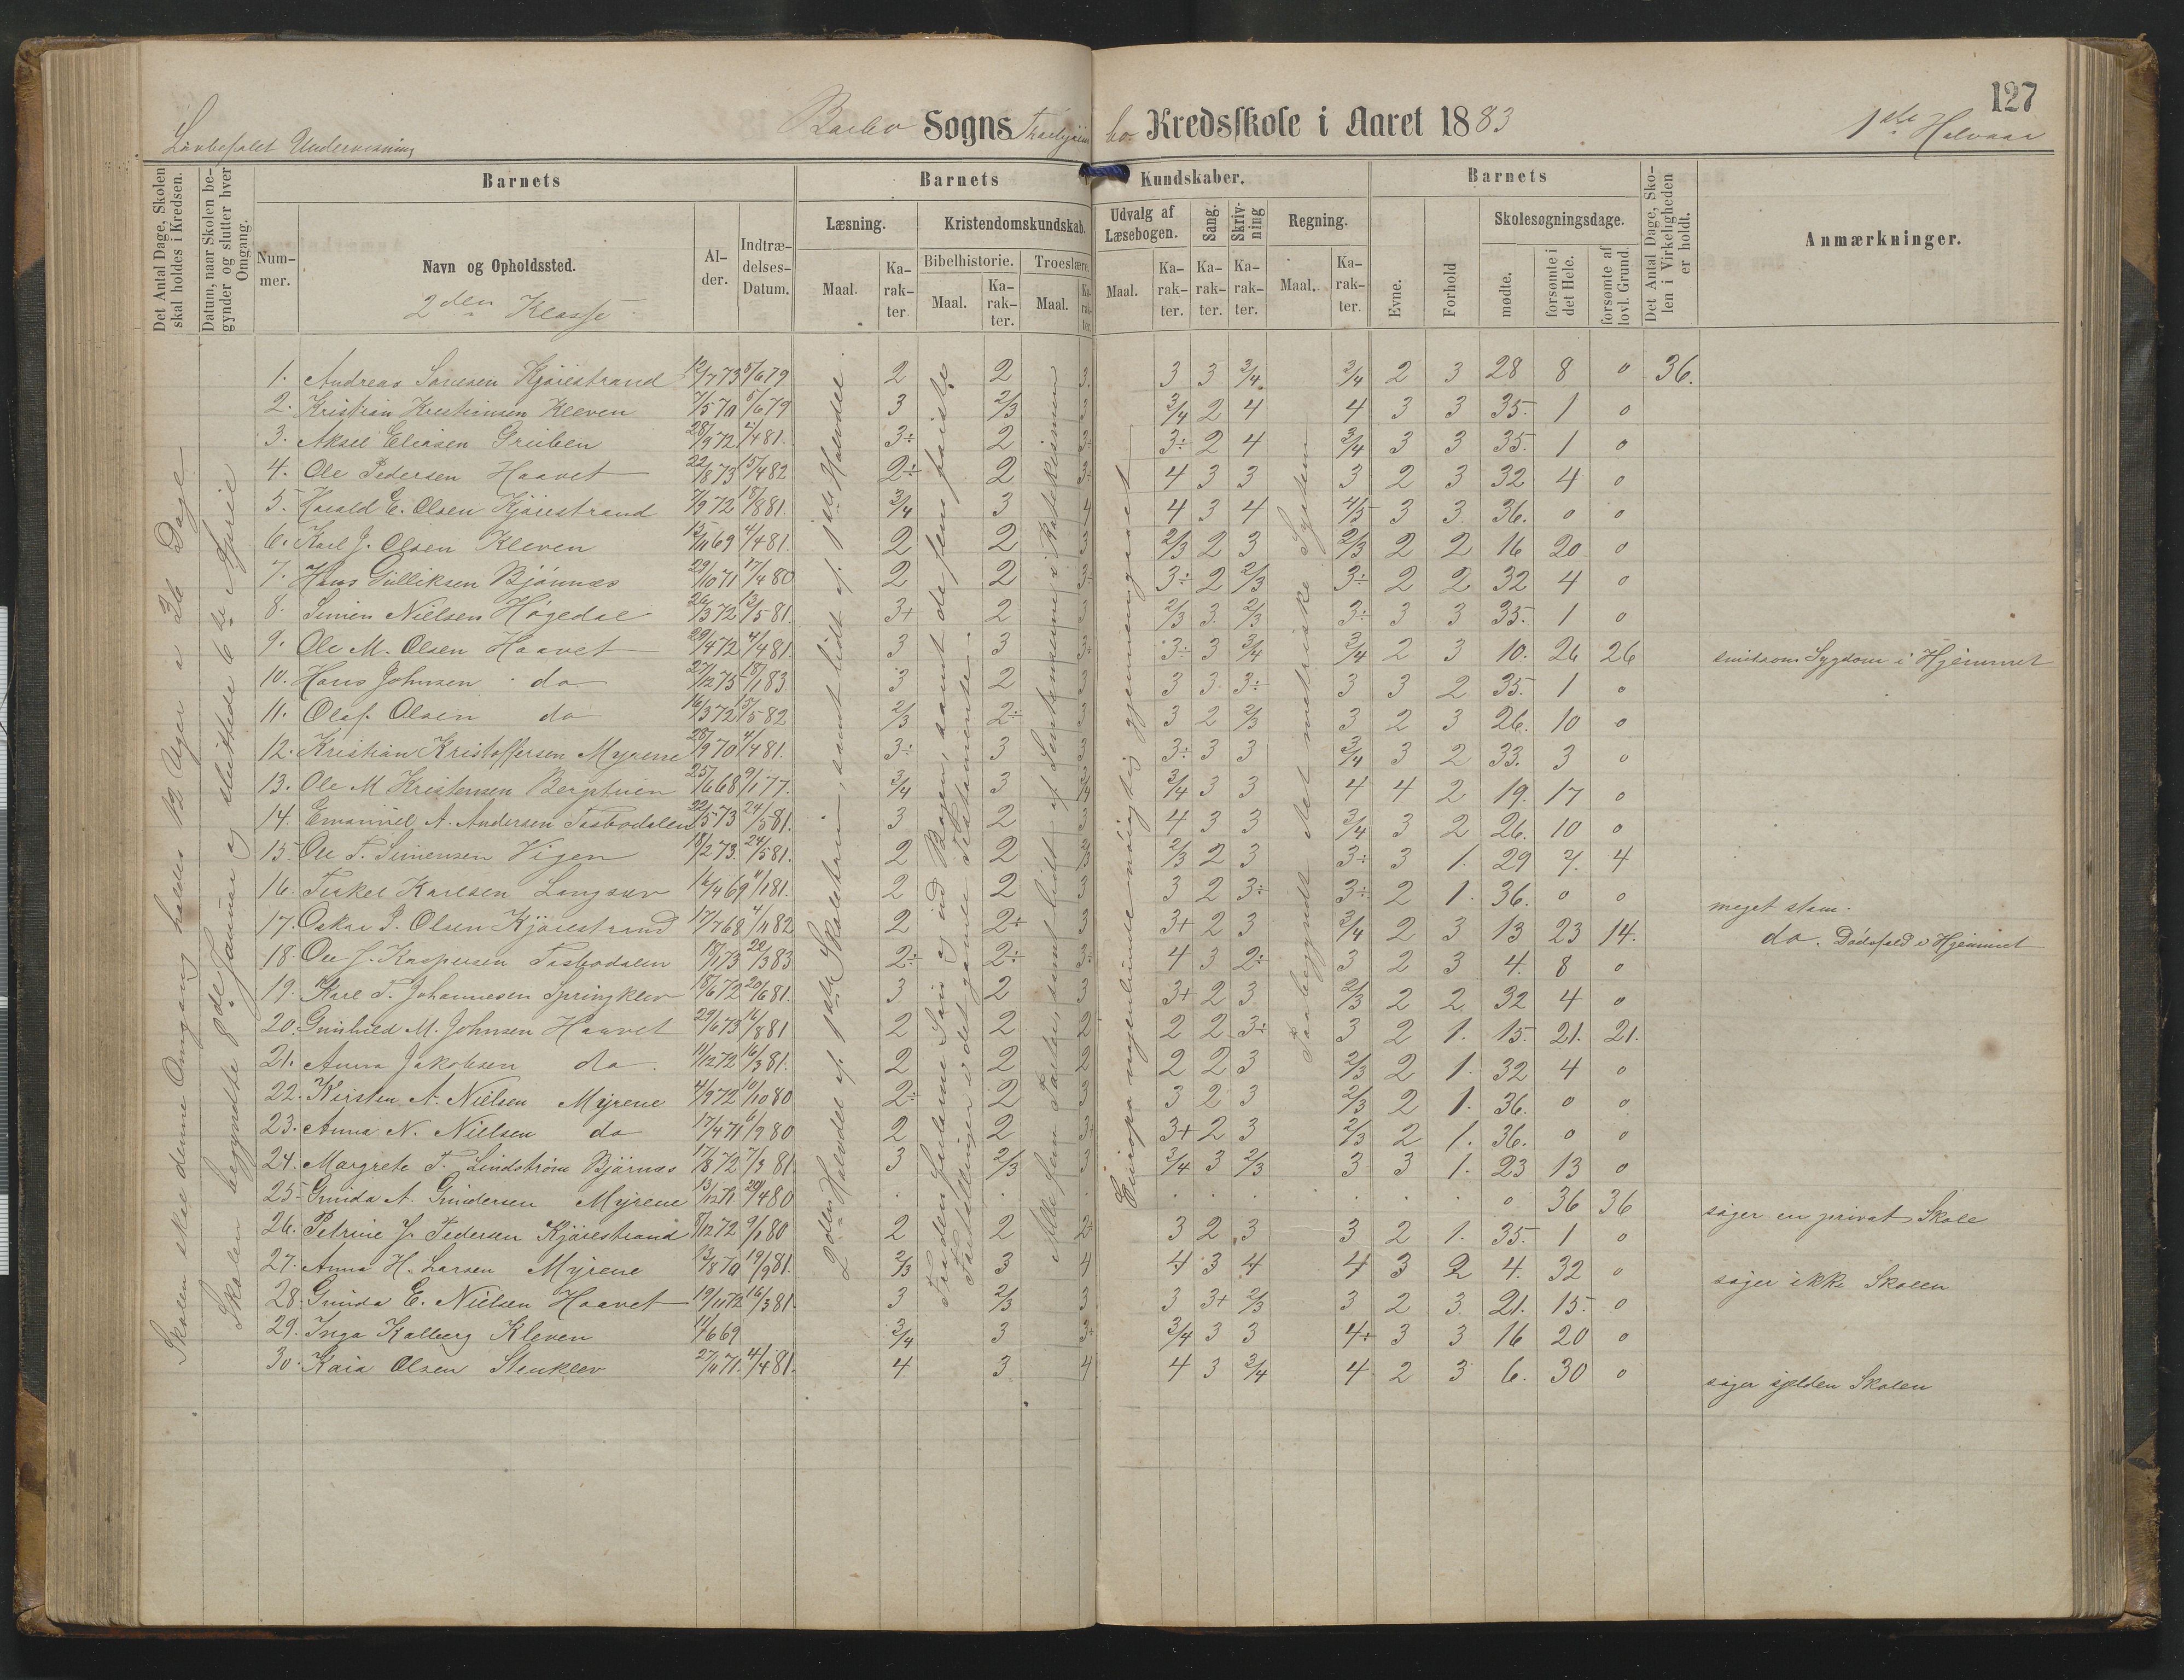 127
Barbo Sogns Kredsskole i Aaret 1883
1ste Halvaar
Lovbefalet Undervisning
Det Antal Dage, Skolen skal holdes i Kredsen.
Datum, naar Skolen begynder og slutter hver Omgang.
Barnets
Barnets Kundskaber.
Barnets
Det Antal Dage, Skolen i Virkeligheden er holdt.
Anmærkninger.
Nummer.
Navn og Opholdssted.
Alder.
Indtrædelses-Datum.
Læsning.
Kristendomskundskab.
Udvalg af Læsebogen.
Sang.
Skrivning
Regning.
Evne.
Forhold
Skolesøgningsdage.
Bibelhistorie.
Troeslære.
Maal.
Karakter
Maal.
Karakter.
Maal.
Karakter.
Maal.
Karakter.
Karakter.
Karakter.
Maal.
Karakter.
mødte.
forsømte i det Hele.
forsømte af lovl. Grund
2den Klasse
Skolen skal denne Omgang holdes 12 Uger a 36 Dage
Skolen begyndte 8de Januar og sluttede 6te April
2den Halvdel af 1ste Skoletrin, samt lidt af 1ste Halvdel
Fra den faldne Søn og ud Bogen, samt de fem første Fortællinger i det gamle Testamente.
Alle fem Parter, samt lidt af Sentenserne i Katekismen
Europa nogenlunde nøiagtig gjennemgaaet
Paabegyndt det metriske System
1. Andreas Sørensen Kjøiestrand 12/7 73 5/6 79 2 2 3 3 3 3/4 3/4 2 3 28 8 0 36.
2. Kristian Kristiansen Kleven 7/5 70 5/6 79 3 2/3 3 3/4 2 4 4 3 3 35. 1 0
3. Aksel Eliasen Gruben 28/9 72 4/4 81. 3÷ 2 3÷ 3÷ 2 4 3/4 3 3 35. 1 0
4. Ole Pedersen Haavet 22/8 73 15/4 82 2÷ 2 3÷ 4 3 3 3 2 3 32 4 0
5. Harald E. Olsen Kjøiestrand 7/9 72 18/8 81. 3/4 3 4 4 3 4 4/5 3 3 36. 0 0
6. Karl J. Olsen Kleven 15/11 69 4/4 81. 2 2 3 2/3 2 3 2/3 2 2 16 20 0
7. Hans Gulliksen Bjønnæs 29/10 71 17/4 80 2 2 3÷ 3÷ 2 2/3 3÷ 2 2 32 4 0
8. Simen Nielsen Høgedal 26/3 72 13/5 81. 3+ 2 3 2/3 3. 2/3 3÷ 3 3 35. 1 0
9. Ole M. Olsen Haavet 29/4 72 4/4 81. 3 3 3÷ 3÷ 3 3/4 3/4 2 3 10. 26 26 smitsom Sygdom i Hjemmet
10. Hans Johnsen do 27/12 75 18/1 83. 3 2 3 3 3 3÷ 3 3 2 35. 1 0
11. Olaf Olsen do 16/3 72 15/5 82 2/3 2÷ 3 3 2 2/3 3 2 3 26. 10 0
12. Kristian Kristoffersen Myrene 28/9 70 4/4 81. 3÷ 3 3 3÷ 3 3 3/4 3 2 33. 3 0
13. Ole M Kristensen 25/6 68 9/1 77. 3/4 3 3/4 3/4 3 3 4 4 2 19. 17 0
14. Emanuel A. Andersen Tasbodalen 22/5 73 24/5 81. 3 2 3 4 3 3 3/4 3 2 26. 10 0
15. Ole T. Simensen Vigen 18/2 73. 24/5 81. 2 2 2/3 2/3 2 3 3÷ 3 1. 29 7. 4
16. Terkel Karlsen Langsæv 14/4 69 11/1 81. 2 2 3 3 2 3÷ 3÷ 2 1. 36. 0 0 meget stam.
17. Oskar P. Olsen Kjøiestrand 17/7 68 4/11 82 2 2+ 3 3+ 2 3 3/4 2 3 13 23 14. do. Dødsfald i Hjemmet
18. Ole J. Kaspersen Tasbodalen 18/1 73 29/3 83 2÷ 2÷ 3÷ 4 3 2÷ 3 2 3 4. 8 0
19. Karl T. Johannesen Springklev 18/6 72 20/6 81. 3 2 3 3+ 2 3 2/3 2 2 32 4 0
20. Gunhild M. Johnsen Haavet 29/6 73 16/8 81 2 2 2 2 2 3+ 3 2 1. 15. 21. 21.
21. Anna Jakobsen do. 11/12 72 16/3 81. 2 2 2 2 2 3 2/3 2 1. 32 4 0
22. Kirsten A. Nielsen Myrene 4/9 72 10/10 80 2÷ 2 3 3 2 3 2/3 2 1. 36. 0 0
23. Anna N. Nielsen do 17/4 71 6/9 80 2 2 3+ 3+ 2 3 2/3 2 1. 36. 0 0
24. Margrete T. Lindstrøm Bjørnæs 17/8 72 7/3 81. 3 2/3 3 3/4 3 2/3 3 3 1. 23 13 0
25. Gunda A. Gundersen Myrene 13/12 71. 20/4 80 0 36 36 søger en privat Skole
26. Petrine J. Pedersen Kjøiestrand 8/12 72 9/1 80 2 2 2÷ 3 2 3 3 2 1. 35. 1 0
27. Anna H. Larsen Myrene 13/8 70 19/9 81. 2/3 3 4 4 3 4 4 3 2 4. 32 0 søger ikke Skolen
28. Gunda E. Nielsen Haavet 19/11 72 16/3 81. 3 2/3 3 3 3+ 2/3 3 2 3 21. 15. 0
29. Inga Kalberg Kleven 11/6 69 3/4 3 3+ 3/4 3 3 4+ 3 3 16 20 0
30. Kaia Olsen Stenklev 27/11 71. 4/4 81. 4 3 4 4 3 3/4 4 2 3 6. 30 0 søger sjelden Skolen